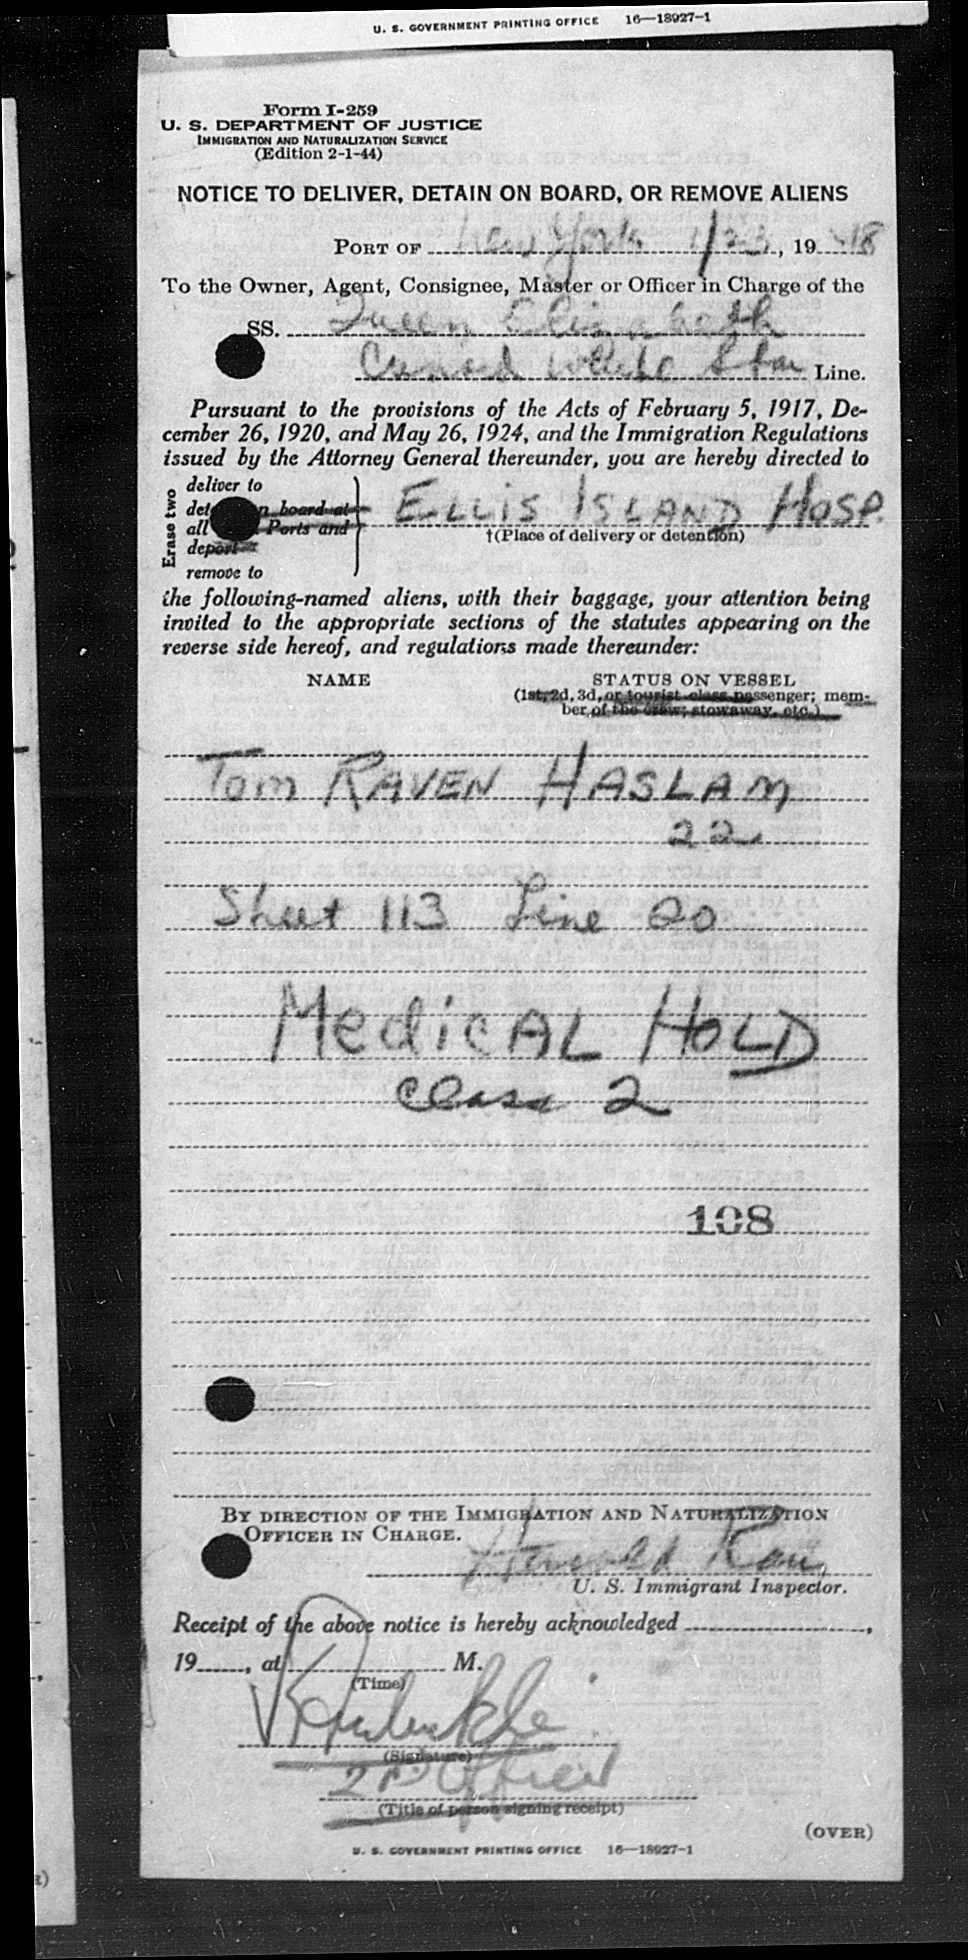 U. S. GOVERNMENT PRINTING OFFICE 16—18927-1
Form I-259
U. S. DEPARTMENT OF JUSTICE
IMMIGRATION AND NATURALIZATION SERVICE
(Edition 2-1-44)
NOTICE TO DELIVER, DETAIN ON BOARD, OR REMOVE ALIENS
PORT OF New York 1/23, 19 48
To the Owner, Agent, Consignee, Master or Officer in Charge of the
SS. Queen Elizabeth
Cunard White Star Line.
Pursuant to the provisions of the Acts of February 5, 1917, De-
cember 26, 1920, and May 26, 1924, and the Immigration Regulations
issued by the Attorney General thereunder, you are hereby directed to
Erase two
deliver to
det n board at
all Ports and
deport
remove to
ELLIS ISLAND HOSP.
†(Place of delivery or detention)
the following-named aliens, with their baggage, your attention being
invited to the appropriate sections of the statutes appearing on the
reverse side hereof, and regulations made thereunder:
NAME STATUS ON VESSEL
(1st, 2d, 3d, or tourist class passenger; mem-
ber of the crew; stowaway, etc.)
Tom RAVEN HASLAM
22
Sheet 113 Line 20
MedicAL HOLD
Class 2
108
BY DIRECTION OF THE IMMIGRATION AND NATURALIZATION
OFFICER IN CHARGE.
U. S. Immigrant Inspector.
Receipt of the above notice is hereby acknowledged ,
19 , at M.
(Time)
(Signature)
2ND Officer
(Title of person signing receipt)
(OVER)
U. S. GOVERNMENT PRINTING OFFICE 16—18927-1